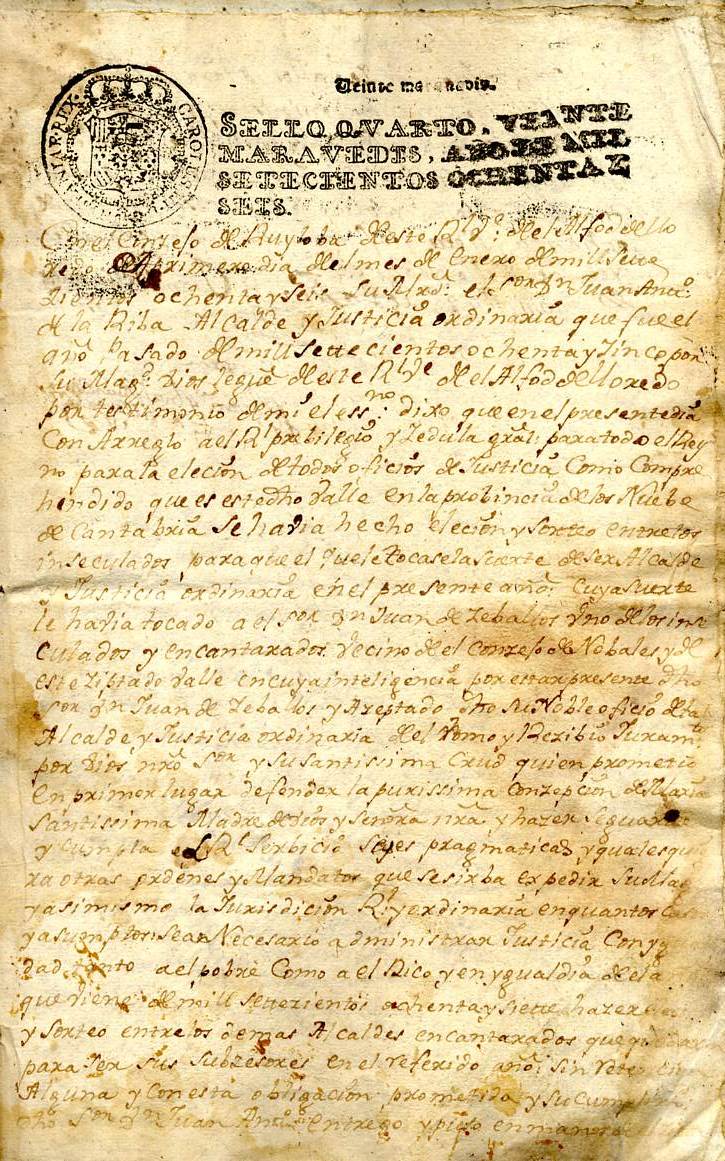 CAROLUS
Veinte maravedis.
SELLO QVARTO, VEINTE
MARAVEDIS, AÑO DE MIL
SETECIENTOS OCHENTA Y
SEIS.
En el Conzejo de Ruyloba de este Rl Ve. de el Alfoz de Llo
redo a primero dia del mes de Enero de mill sette
zientos ochenta y seis su Mrd. el sor Dn Juan Anto.
de la Riba Alcalde y Justicia ordinaria que fue el
año Pasado de mill settecientos ochenta y zinco por
su Magd. Dios le gue. de este Rl Ve de el Alfoz de Lloredo
por testimonio de mi el essno. dixo que en el presente dia
Con Arreglo a el Rl pribilegio y Zedula gral. para todo el Rey
no para la elecion de todos oficios de Justicia Como Compre
hendido que es este dho Valle en la probincia de los Nuebe
de Cantabria se havia hecho elecion y sorteo entre los
inseculados para que el que le tocase la suerte de ser Alcalde
y Justicia ordinaria en el presente año: Cuya suerte
le havia tocado a el sor Dn Juan de Zeballos Vno de los inse
culados y encantarados Vecino de el Conzejo de Nobales y de
este Zittado Valle en cuya inteligencia por estar presente dho
sor Dn Juan de Zeballos y Azeptado dho su Noble oficio de tal
Alcalde y Justicia ordinaria de el tomo y Rezibio Juramto
por Dios nro sor y su santissima Cruz quien prometio
en primer lugar defender la purissima Conzepcion de Maria
santissima Madre de Dios y señora nra y hazer se guarde
y cumpla el Rl serbicio Leyes pragmaticas y qualesquie
ra otras ordenes y Mandatos que se sirba expedir su Mag
y asimismo la Jurisdicion Rl y ordinaria en quantos Cas
y asumptos sea Necesario administrar Justicia Con yg
dad tanto a el pobre Como a el Rico y en ygual dia de el a
que viene de mill settezientos ochenta y siette hazer
y sorteo entre los demas Alcaldes encantarados que
para ser sus subzesores en el referido año: sin retencion
Alguna y con esta obligacion prometida y su
dho sor Dn Juan Anto. entrego y puso en mano de